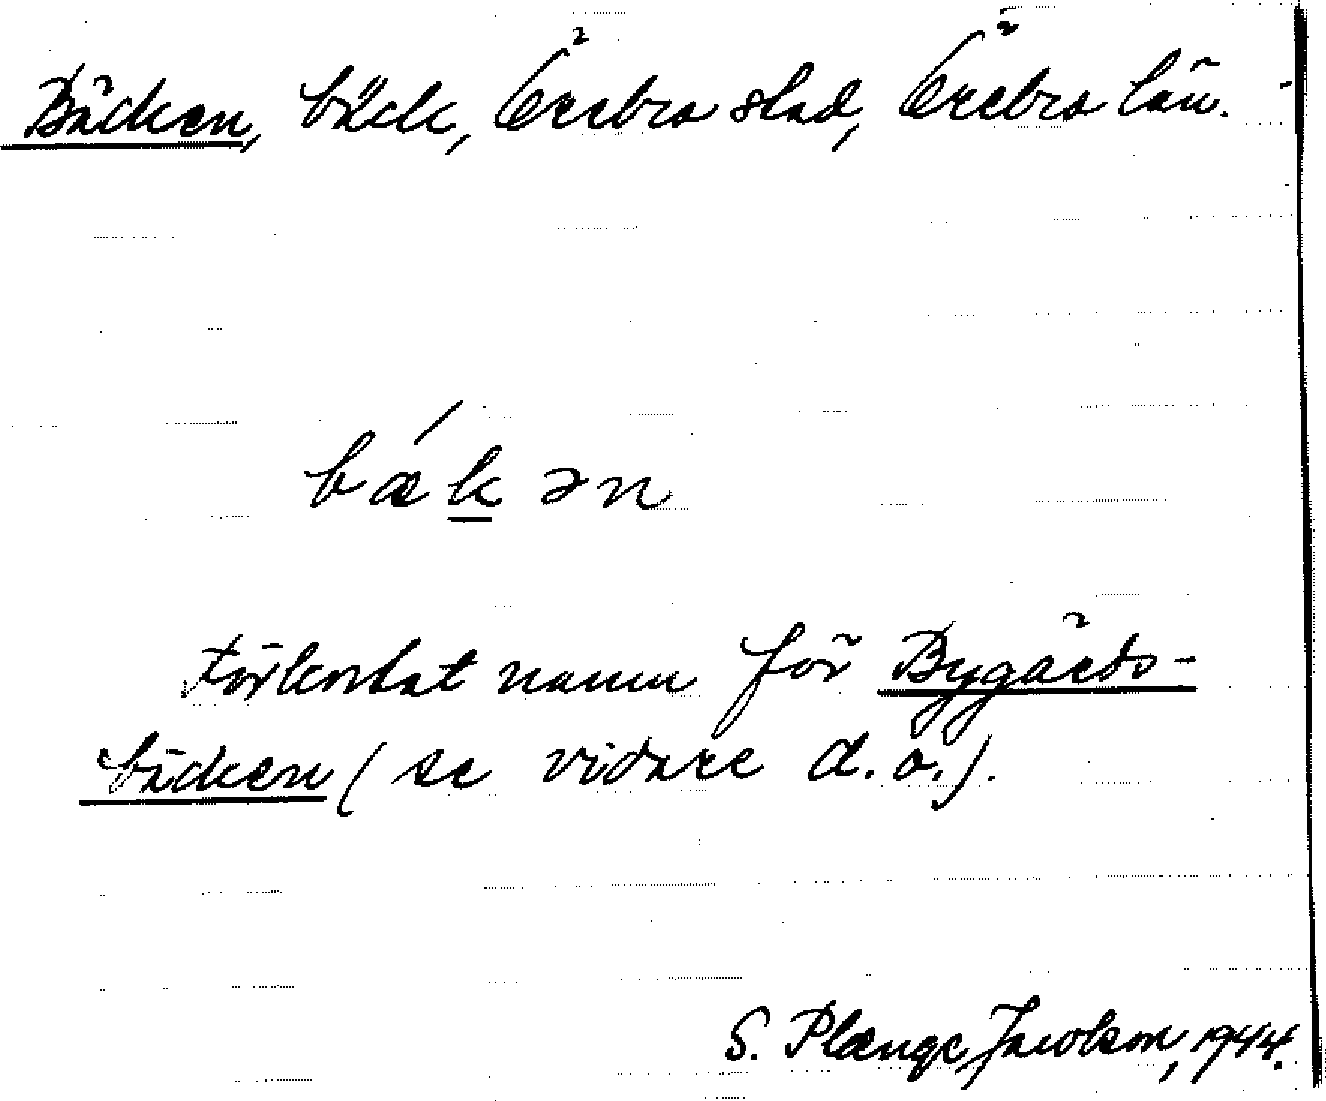 Bäcken, bäck, Örebro stad, Örebro län.
bækən
Förkortat namn för Bygärds-
bäcken (se vidare d.o.).
S. Plænge Jacobson, 1944.